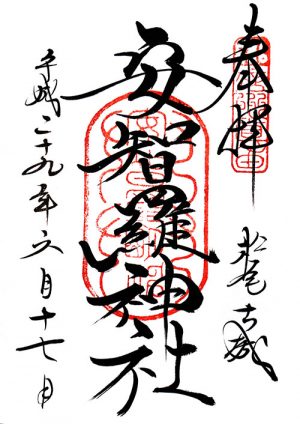 奉拝
松尾古城
安智羅神社
平成二十九年六月十七日